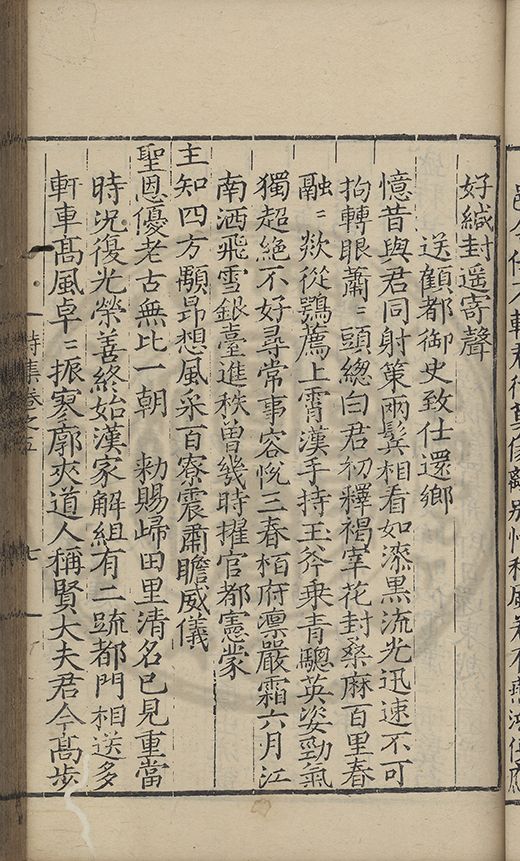 好緘封遥寄聲
送顧都御史致仕還鄉
憶昔與君同射策兩鬂相看如漆黒流光迅速不可
拘轉眼蕭〻頭緫白君初釋褐宰花封桑麻百里春
融〻欻從鶚薦上霄漢手持玉斧乗青驄英姿勁氣
獨超絶不好尋常事容悦三春栢府凛嚴霜六月江
南洒飛雪銀臺進秩曽幾時擢官都憲蒙
主知四方顒昻想風采百寮震肅瞻威儀
聖恩優老古無比一朝 勑賜歸田里清名已見重當
時况復光榮善終始漢家解組有二踈都門相送多
軒車髙風卓〻振寥廓夾道人稱賢大夫君今髙歩
詩集卷之五
七